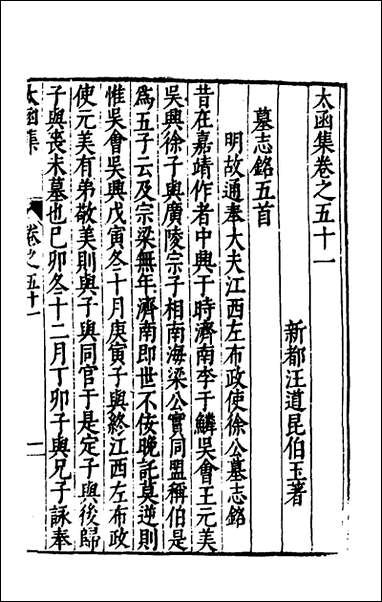 太函集卷之五十一
新都汪道昆伯玉著
墓志銘五首
明故通奉大夫江西左布政使徐公墓志銘
昔在嘉靖作者中興于時濟南李于鱗吳會王元美
吳興徐子與廣陵宗子相南海梁公實同盟稱伯是
爲五子云及宗梁無年濟南即世不佞晚託莫逆則
惟吳會吳興戊寅冬十月庚寅子與終江西左布政
使元美有弟敬美則與子與同官于是定子與後歸
子與喪未墓也己卯冬十二月丁卯子與兄子詠奉
太函集
卷之五十一
一